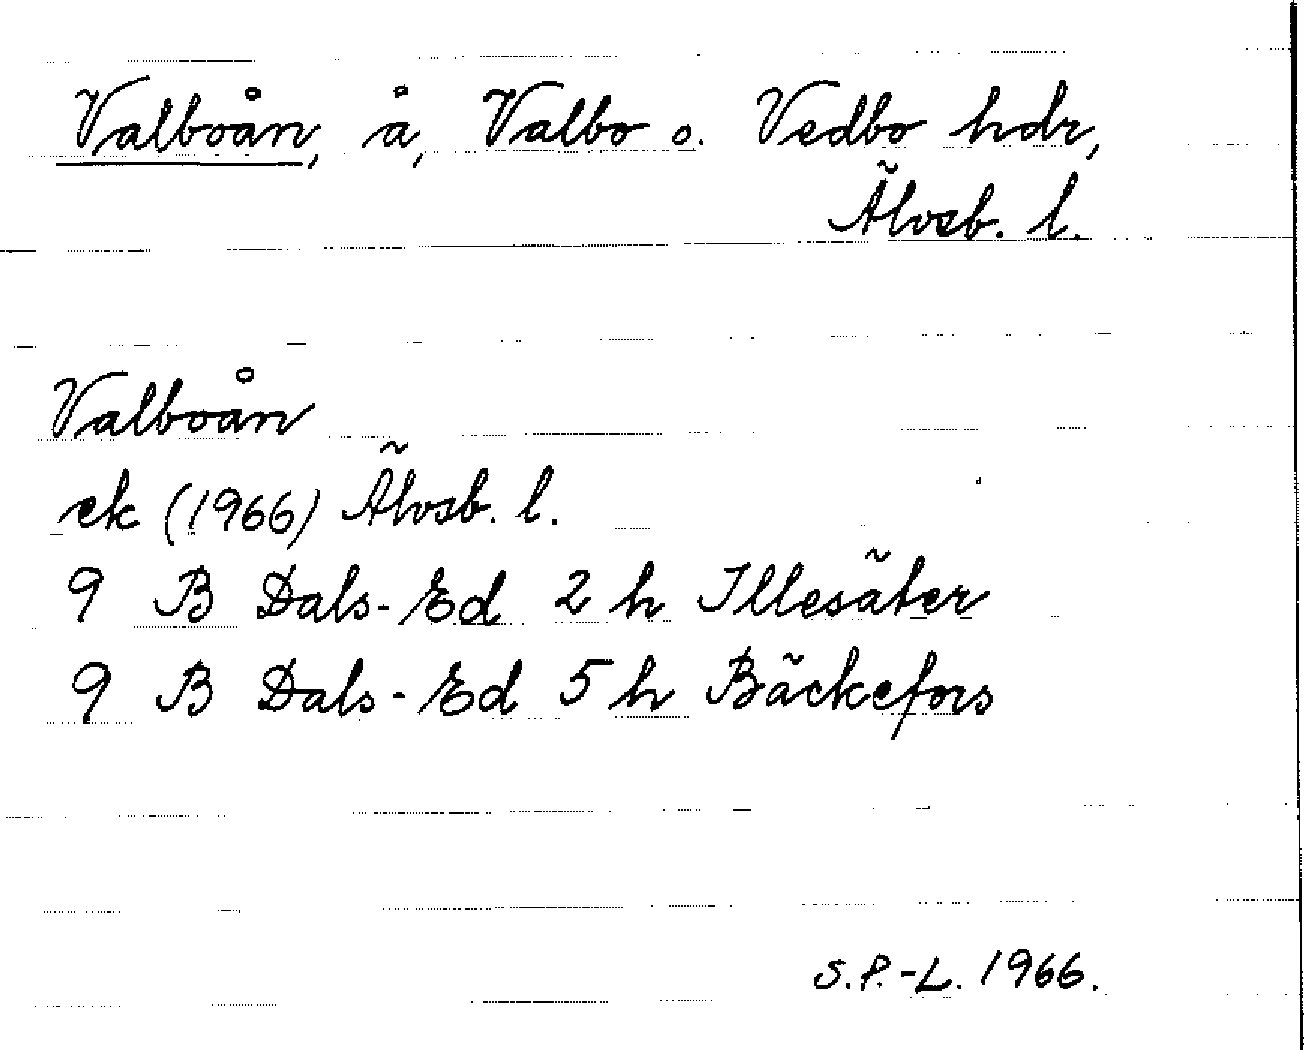 Valboån, å, Valbo o. Vedbo hdr,
Älvsb. l.
Valboån
ek (1966) Älvsb. l.
9 B Dals-Ed 2 h Illesäter
9 B Dals-Ed 5 h Bäckefors
S.P.-L. 1966.